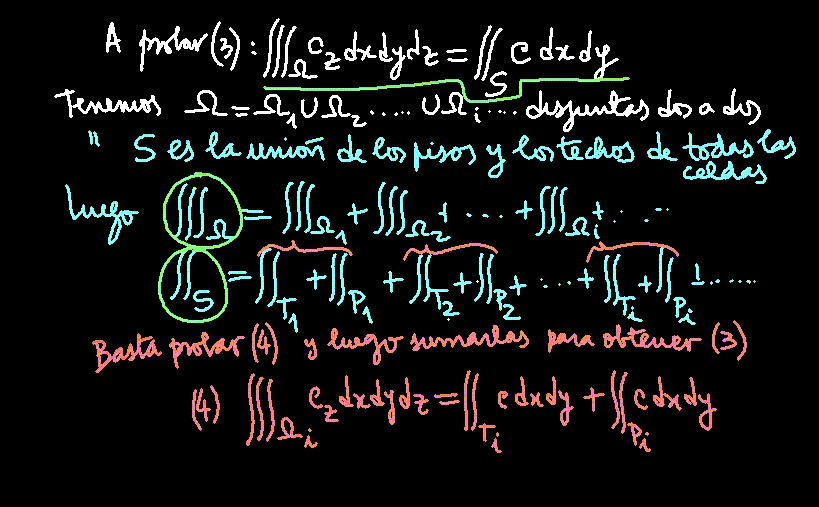 A probar (3): ∭_Ω c_z dxdydz = ∬_S c dxdy
Tenemos Ω = Ω_1 ∪ Ω_2 ..... ∪ Ω_i .... disjuntas dos a dos
" S es la unión de los pisos y los techos de todas las
celdas
luego ∭_Ω = ∭_Ω_1 + ∭_Ω_2 + ... + ∭_Ω_i + ....
∬_S = ∬_T_1 + ∬_P_1 + ∬_T_2 + ∬_P_2 + ... + ∬_T_i + ∬_P_i + ......
Basta probar (4) y luego sumarlas para obtener (3)
(4) ∭_Ω_i c_z dxdydz = ∬_T_i c dxdy + ∬_P_i c dxdy